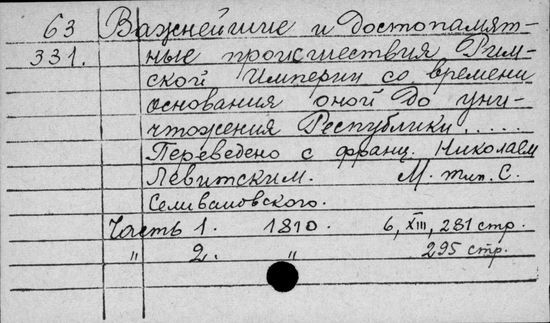 63 Важнейшие и достопамят-
331. ные происшествия Рим-
ской Империи со времени
основания оной до уни-
чтожения Республики.....
Переведено с франц. Николаем
Левитским. М. тип. С.
Селивановского.
Часть 1. 1810. 6, XIII, 281 стр.
" 2. " 295 стр.